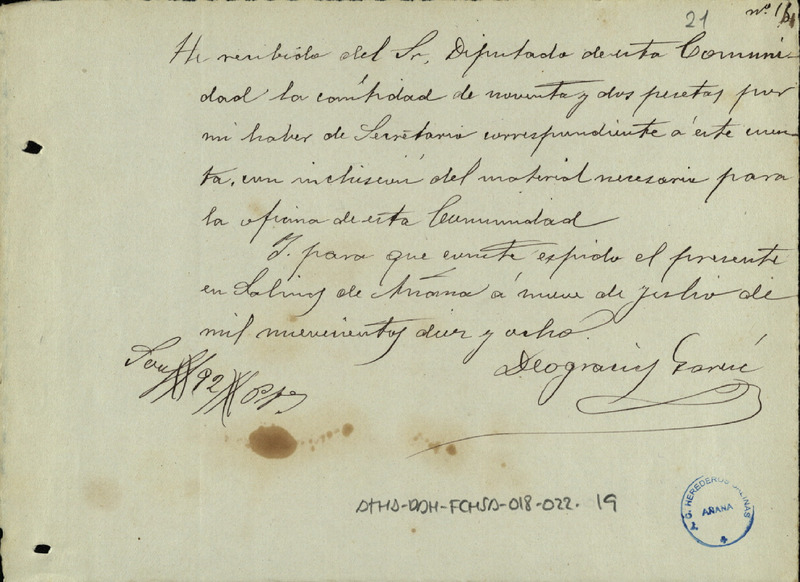 21
nº 16
He recibido del Sr. Diputado de esta Comuni-
dad la cantidad de noventa y dos pesetas por
mi haber de Secretario correspondiente á este cuen-
ta, con inclusión del material necesario para
la oficina de esta Comunidad
Y para que conste espido el presente
en Salinas de Añana á nueve de Julio de
mil nuevecientos diez y ocho.
Son 92 Pts
Deogracias García
ATHA-DAH-FCHSA-018-022. 19
HEREDEROS SALINAS
AÑANA